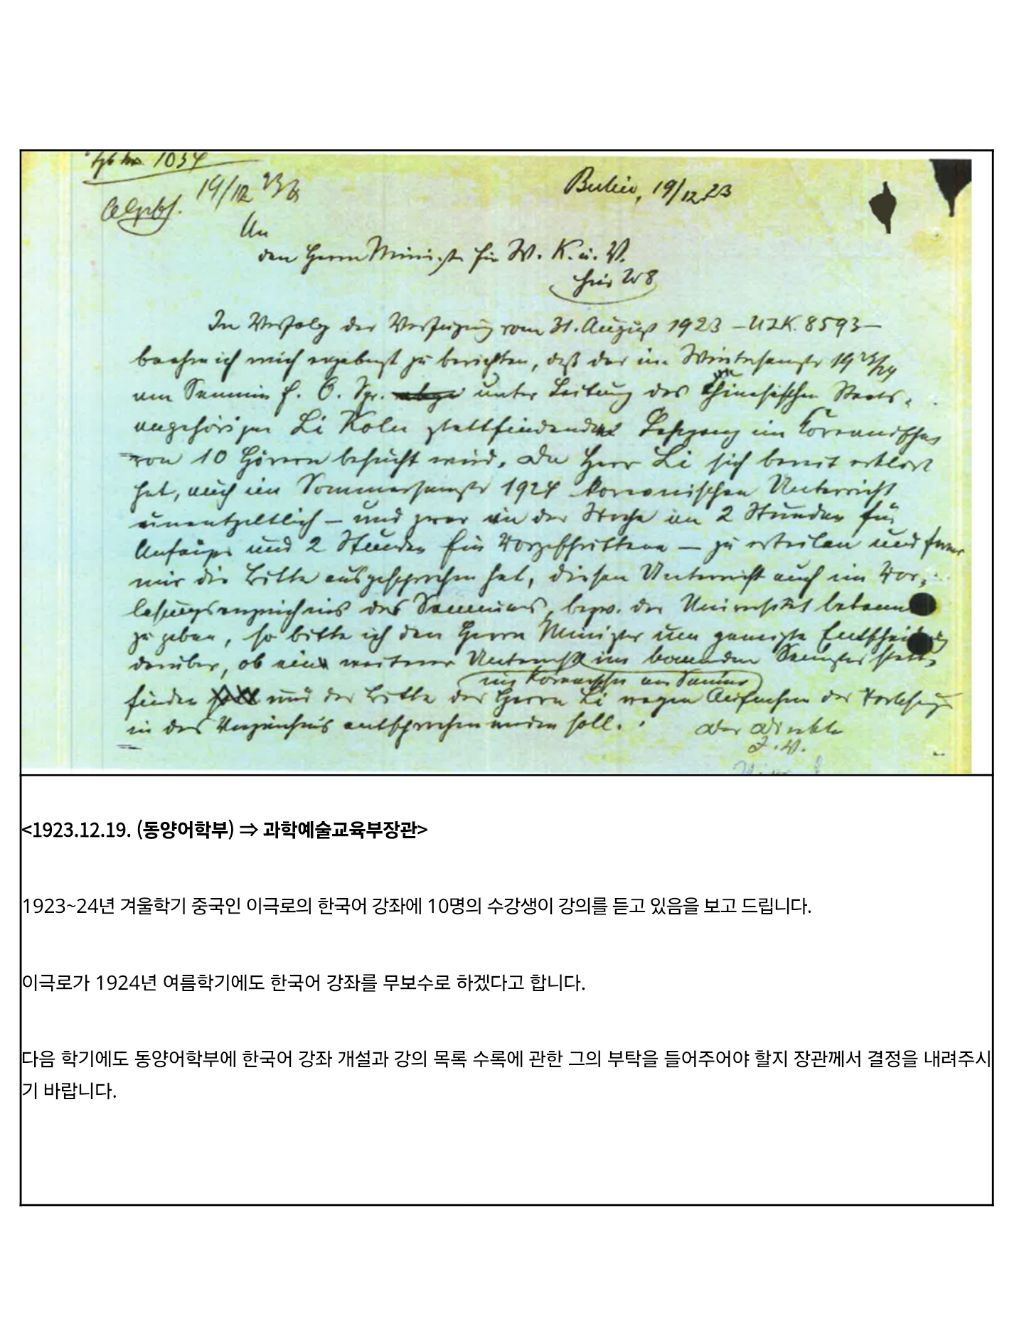 19/12 23
Berlin, 19/12 23
An
den Herrn Minister für W. K. u. V.
hier W8
In Verfolg der Verfügung vom 31. August 1923 – U I K. 8593 –
beehre ich mich ergebenst zu berichten, daß der im Wintersemester 1923/24
am Seminar f. O. Spr. unter Leitung des chinesischen Staats-
angehörigen Li Kolu stattfindende Lehrgang im Koreanischen
von 10 Hörern besucht wird. Da Herr Li sich bereit erklärt
hat, auch im Sommersemester 1924 koreanischen Unterricht
unentgeltlich – und zwar in der Woche in 2 Stunden für
Anfänger und 2 Stunden für Vorgeschrittene – zu erteilen und ferner
mir die Bitte ausgesprochen hat, diesen Unterricht auch im Vor-
lesungsverzeichnis des Seminars, bezw. der Universität bekannt
zu geben, so bitte ich den Herrn Minister um geneigte Entscheidung
darüber, ob ein weiterer Unterricht im kommenden Semester statt-
im Koreanischen am Seminar
finden und der Bitte des Herrn Li wegen Aufnahme der Vorlesung
in das Verzeichnis entsprochen werden soll.
Der Direktor
I. V.
<1923.12.19. (동양어학부) ⇒ 과학예술교육부장관>
1923~24년 겨울학기 중국인 이극로의 한국어 강좌에 10명의 수강생이 강의를 듣고 있음을 보고 드립니다.
이극로가 1924년 여름학기에도 한국어 강좌를 무보수로 하겠다고 합니다.
다음 학기에도 동양어학부에 한국어 강좌 개설과 강의 목록 수록에 관한 그의 부탁을 들어주어야 할지 장관께서 결정을 내려주시
기 바랍니다.